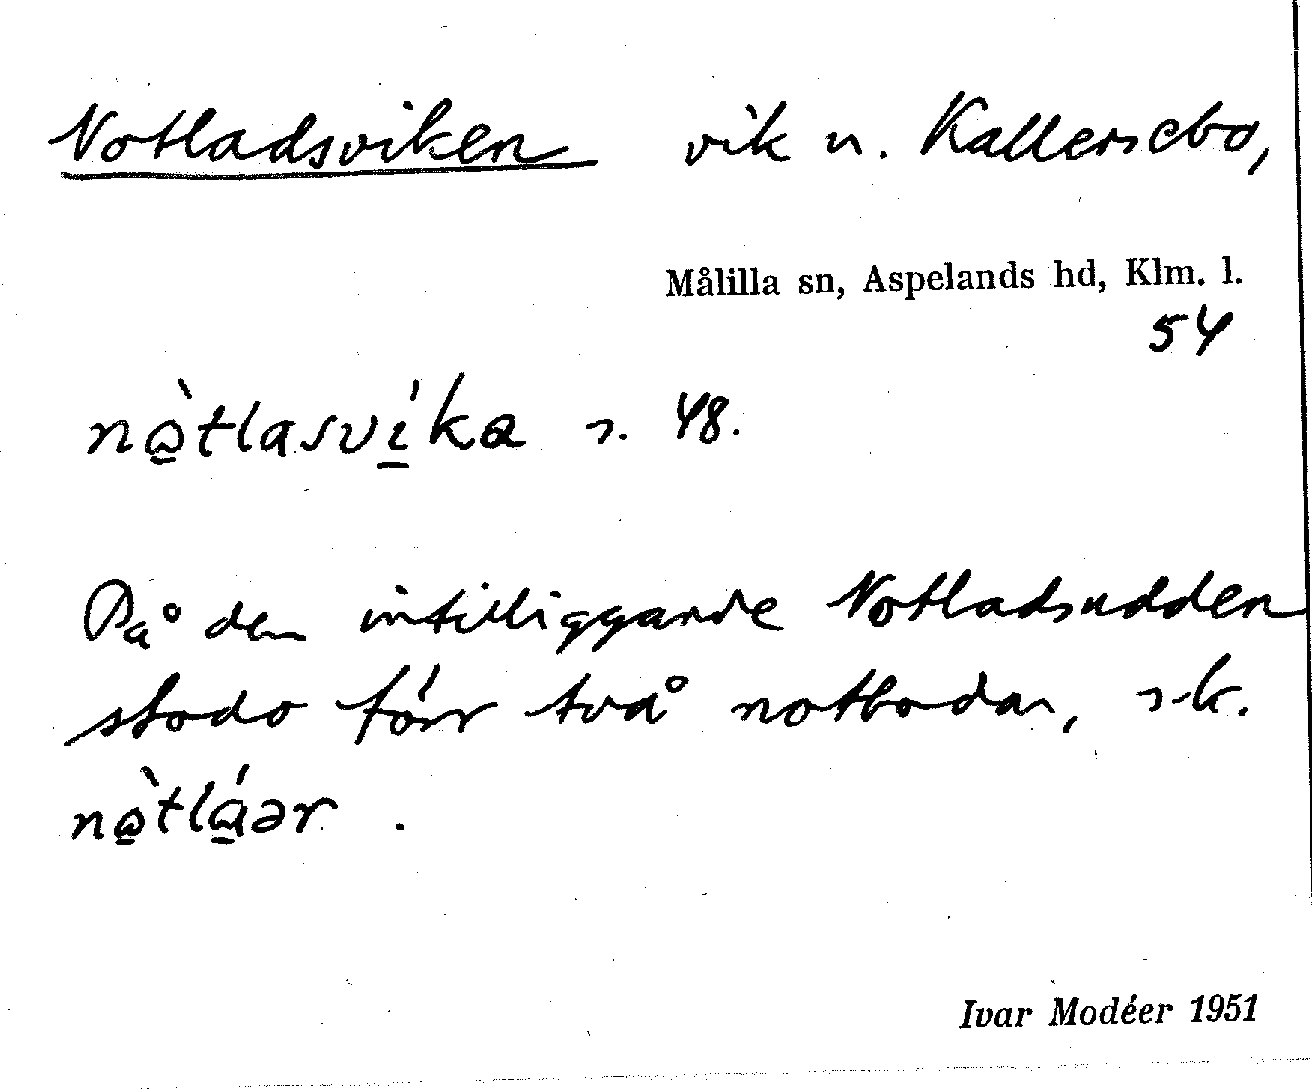 Notladsviken vik u. Kallersebo,
Målilla sn, Aspelands hd, Klm. l.
54
nò̱tlasví̱ka s. 48.
På den intilliggande Notladsudden
stodo förr två notbodar, s.k.
nò̱tlá̱ər .
Ivar Modéer 1951